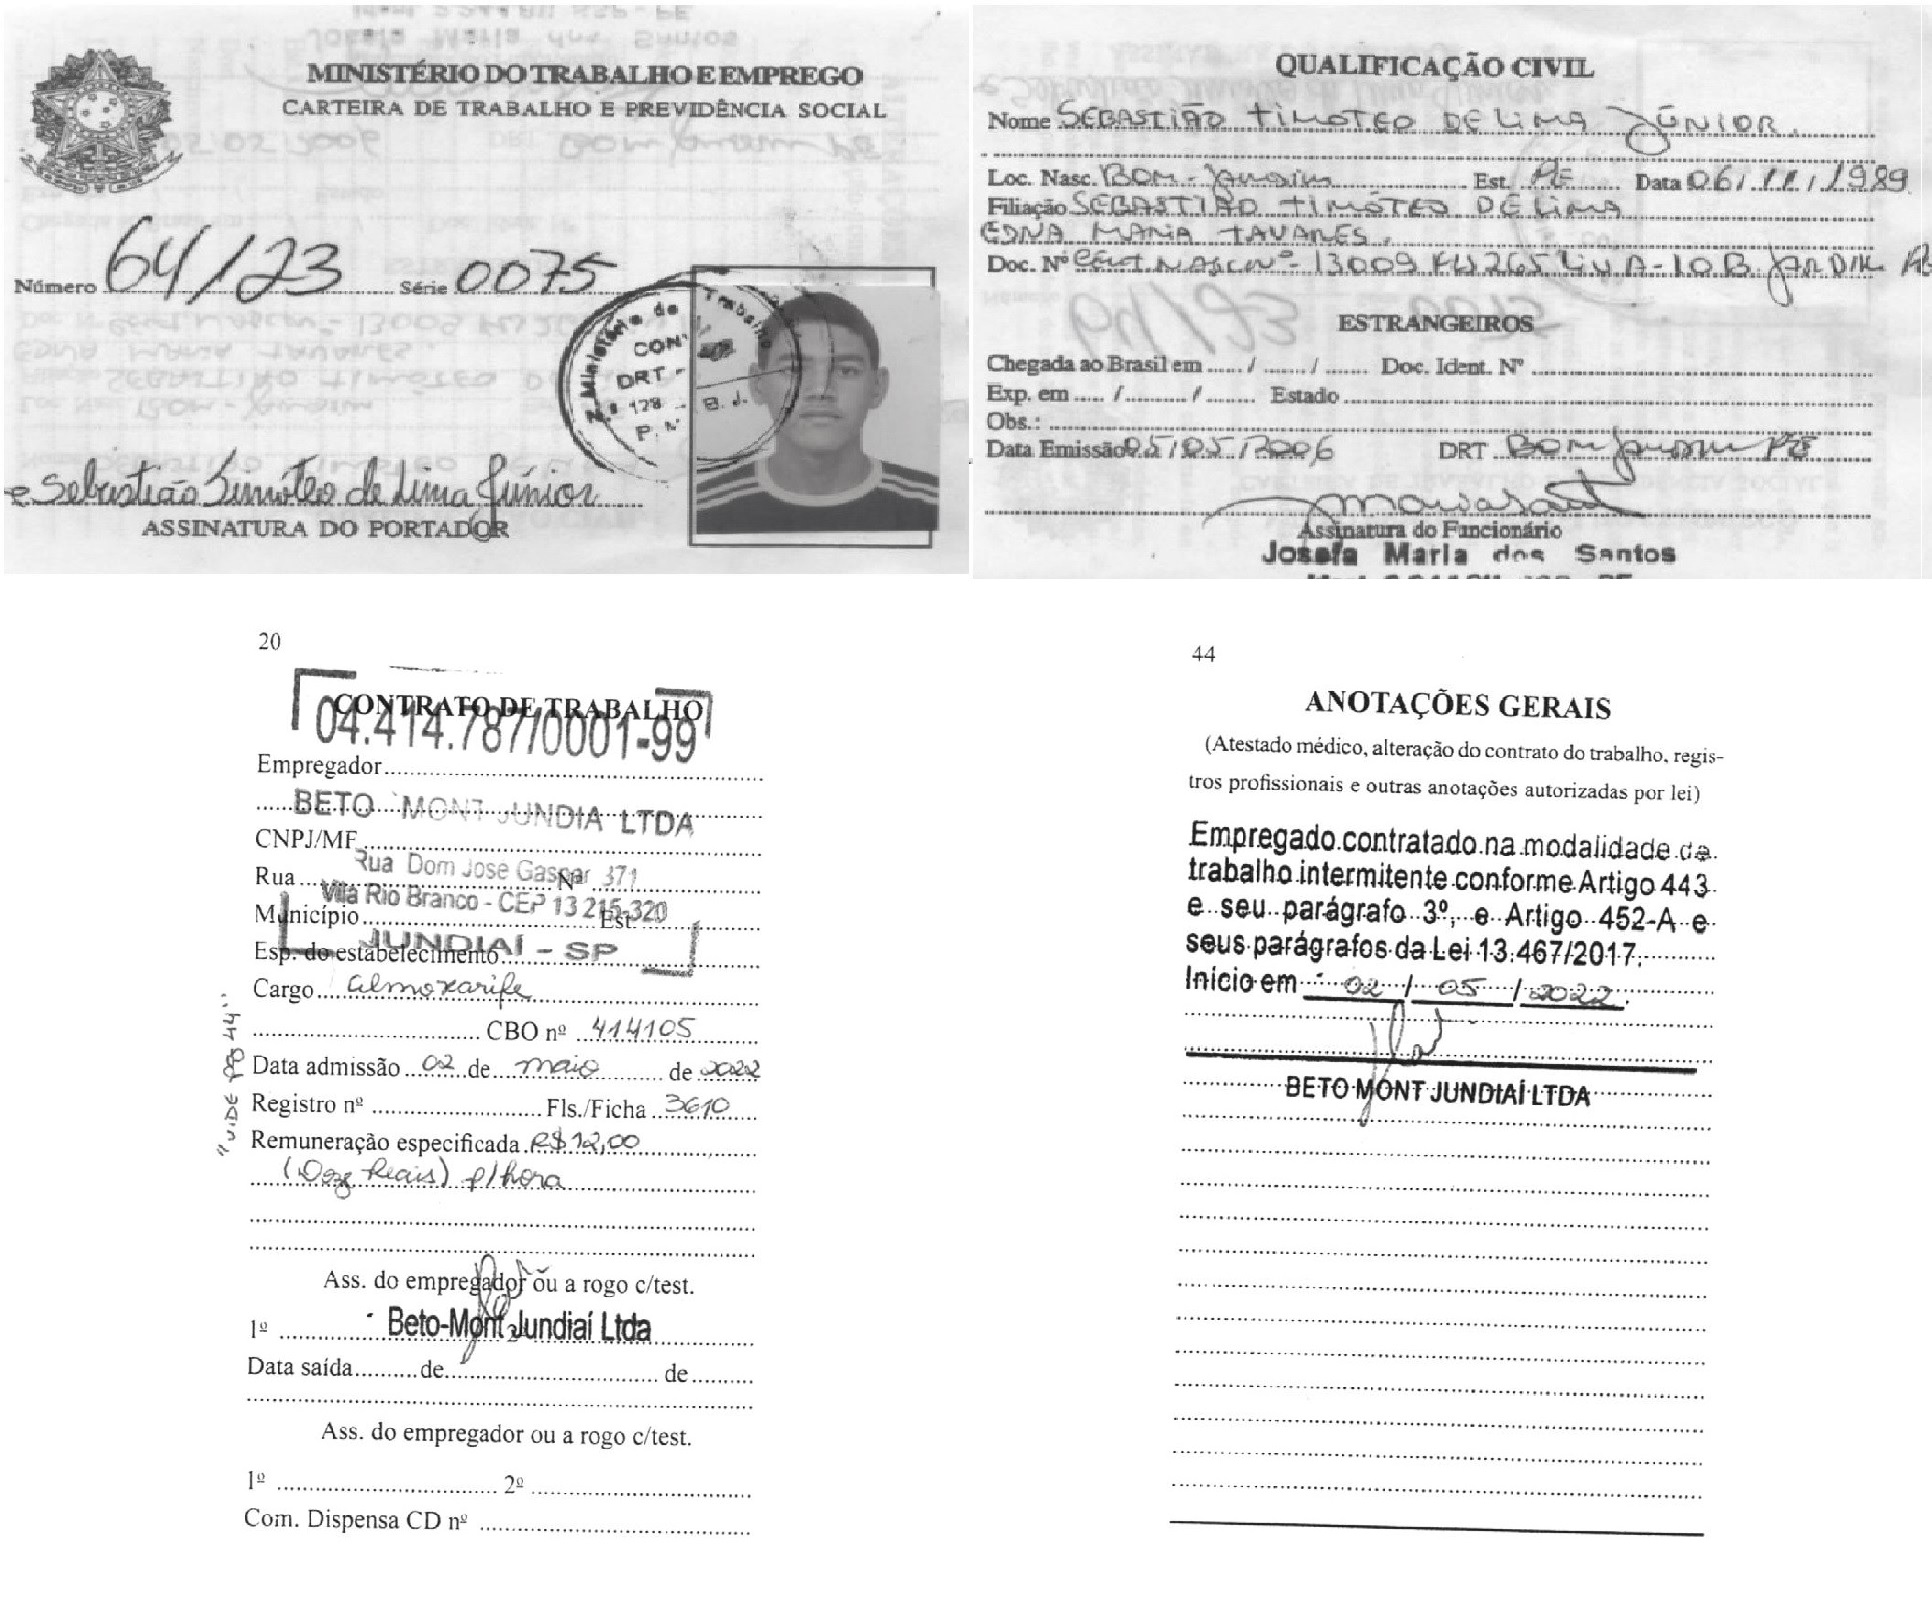 MINISTÉRIO DO TRABALHO E EMPREGO
CARTEIRA DE TRABALHO E PREVIDÊNCIA SOCIAL
Número 64/23 Série 0075
Ministério do Trabalho
CON
DRT -
Nº 128 B. J.
P.
Sebastião Timóteo de Lima Júnior
ASSINATURA DO PORTADOR
QUALIFICAÇÃO CIVIL
Nome SEBASTIÃO TIMOTEO DE LIMA JÚNIOR.
Loc. Nasc. BOM-Jardim Est. PE Data 06/11/1989
Filiação SEBASTIÃO TIMÓTEO DE LIMA
EDNA MARIA TAVARES.
Doc. Nº CERT NASC Nº - 13009 FLS 265 LIV A-10 B. JARDIM PE
ESTRANGEIROS
Chegada ao Brasil em ...... / ........ / ....... Doc. Ident. Nº
Exp. em ..... / ........... / ......... Estado
Obs.:
Data Emissão 05/05/2006 DRT Bom Jardim PE
Assinatura do Funcionário
Josefa Maria dos Santos
20
CONTRATO DE TRABALHO
04.414.787/0001-99
Empregador
BETO MONT JUNDIA LTDA
CNPJ/MF
Rua Dom José Gaspar 371
Rua Nº
Vila Rio Branco - CEP 13 215-320
Município Est.
JUNDIAÍ - SP
Esp. do estabelecimento
Cargo almoxarife
CBO nº 414105
Data admissão 02 de maio de 2022
Registro nº Fls./Ficha 3610
Remuneração especificada R$12,00
(Doze Reais) p/hora
"VIDE 44"
Ass. do empregador ou a rogo c/test.
1º Beto-Mont Jundiaí Ltda
Data saída de de
Ass. do empregador ou a rogo c/test.
1º 2º
Com. Dispensa CD nº
44
ANOTAÇÕES GERAIS
(Atestado médico, alteração do contrato do trabalho, regis-
tros profissionais e outras anotações autorizadas por lei)
Empregado contratado na modalidade de
trabalho intermitente conforme Artigo 443
e seu parágrafo 3º, e Artigo 452-A e
seus parágrafos da Lei 13.467/2017.
Início em 02 / 05 / 2022.
BETO MONT JUNDIAÍ LTDA